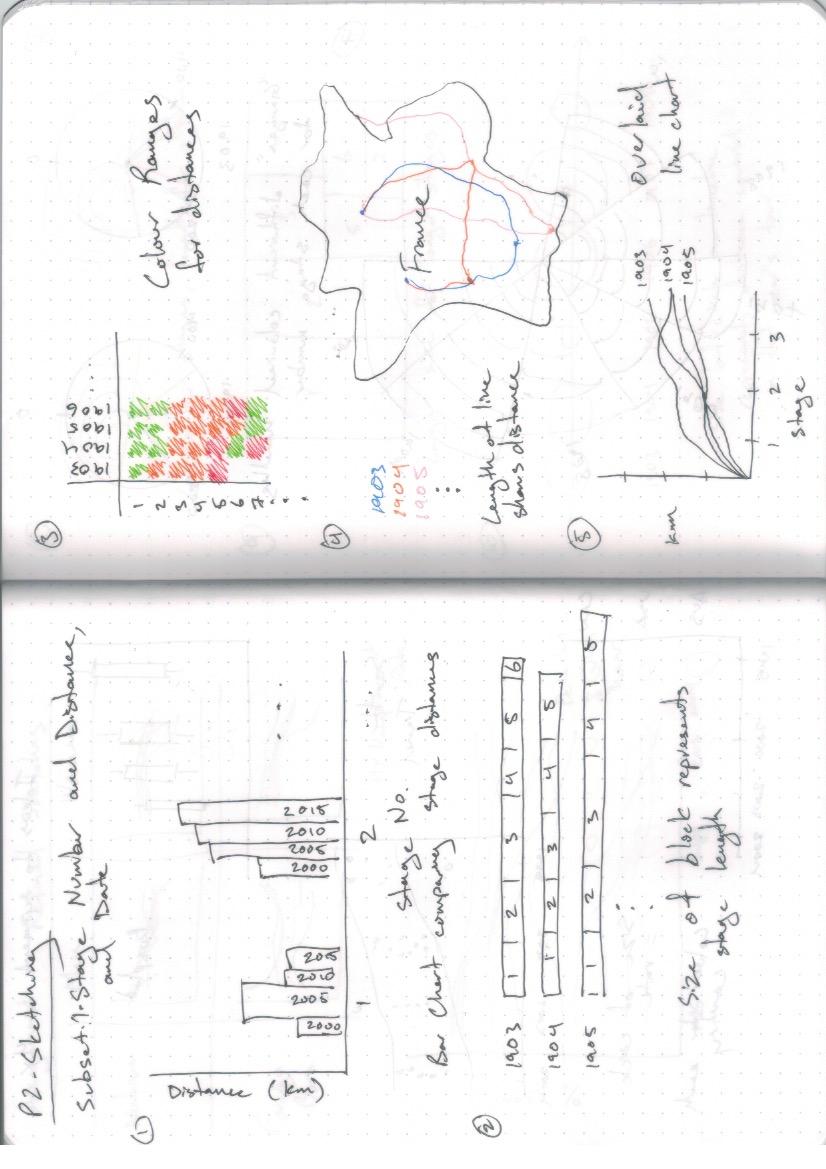 P2 - Sketching
Subset.1 - Stage Number and Distance,
and Date
1
Distance (km)
2000
2005
2010
2015
2000
2005
2010
2015
....
1
2
....
Stage No.
Bar Chart comparing stage distances
2
1903 1 2 3 4 5 6
1904 1 2 3 4 5
1905 1 2 3 4 5
Size of block represents
stage length
3
1903 1904 1905 1906 ....
1
2
3
4
5
6
7
Colour Ranges
for distances
4
1903
1904
1905
France
Length of line
shows distance
5
km
1903
1904
1905
1 2 3
stage
Overlaid
line chart